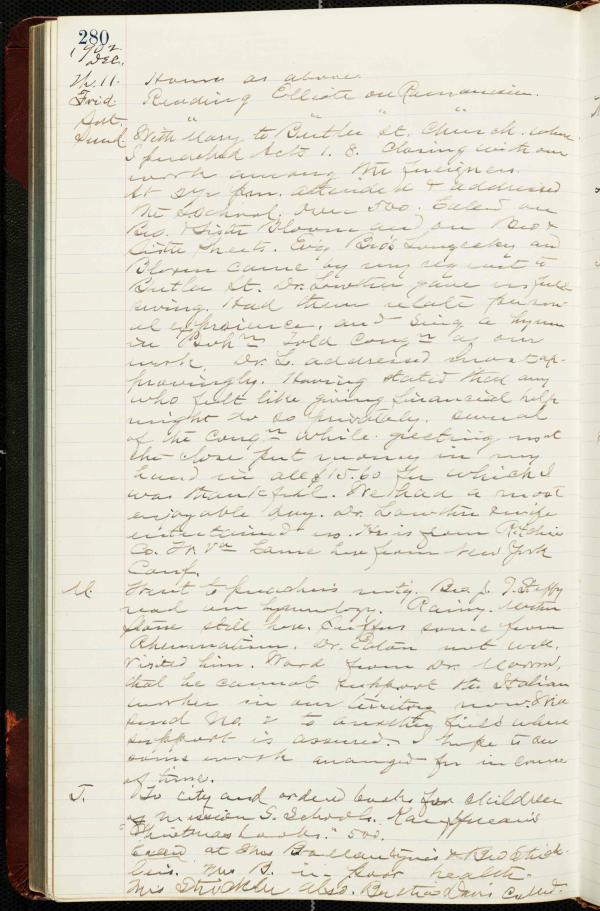 280
1902
Dec.
Th. 11. Home as above.
Frid. Reading Elliott on Romanism.
Sat. " " " "
Sund. With Mary to Butler St. Church. where
I preached Acts 1. 8. Closing with our
work among the foreigners.
At 2½ p.m. attended & addressed
the S. School. Over 500. Called on
Bro. & Sister Bloom and on Bro &
Sister Sheets. Evg Bros and
Bloom came by my request to
Butler St. Dr. Lowther gave us full
swing. Had them relate person-
al experience, and sing a hymn
in Bohm. Told Congn of our
work. Dr. L. addressed most ap-
provingly. Having stated that any
who felt like giving financial help
might do so privately. several
of the Congn while greeting me at
the close put money in my
hand in all $15.60 for which I
was thankful. We had a most
enjoyable day. Dr. Lowther & wife
entertained us. He is from Ritchie
Co. W. Va. Came here from New York
Conf.
M. Went to preachers mtg. Bro. J. T.
read on hymnology. Rainy. Mother
still here. Suffers some from
Rheumatism. Dr. Eaton not well.
Visited him. Word from Dr. Morrow,
that he cannot support the Italian
worker in our territory now. Will
send No. 2 to another field where
support is assured. I hope to see
some work arranged for in course
of time.
T. To city and ordered books for children
of Mission S. Schools. Kauffman's
"Christmas books." 500.
Called at Mrs Ballantyne's & Bro Strick-
ler's. Mrs B. in poor health.
Mrs Strickler also. Bertha Davis called.